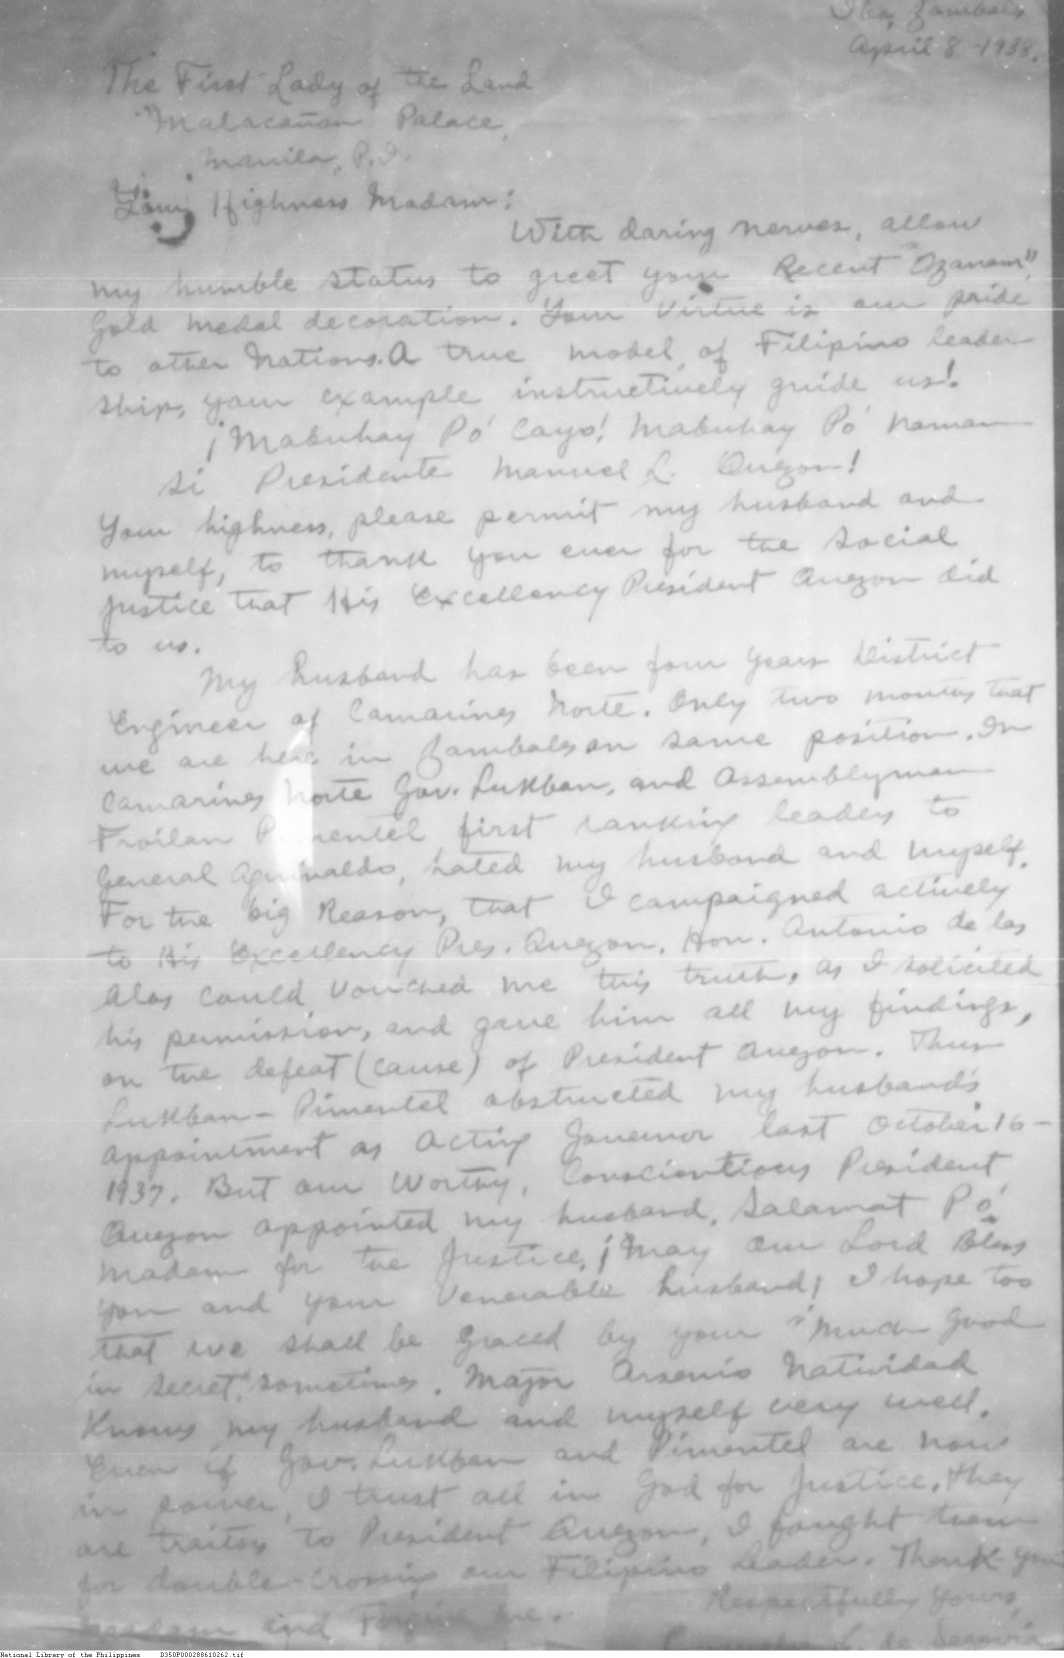 Iba, Zambales
April 8 - 1938.
The First Lady of the Land
Malacañan Palace,
Manila, P.I.
Your Highness Madam:
With daring nerves, allow
my humble status to greet your Recent "Ozanam",
Gold medal decoration. Your Virtue is our pride
to other Nations. A true model of Filipino leader
ship, your example instructively guide us!
¡Mabuhay Pó Cayo! Mabuhay Pó naman
si Presidente Manuel L. Quezon!
Your highness, please permit my husband and
myself, to thank you ever for the social
justice that His Excellency President Quezon did
to us.
My husband has been four years District
Engineer of Camarines Norte. Only two months that
we are here in Zambales on same position. In
Camarines Norte Gov. Lukban, and Assemblyman
Froilan Pimentel first ranking leaders to
General Aguinaldo, hated my husband and myself.
For the big Reason, that I campaigned actively
to His Excellency Pres. Quezon. Hon. Antonio de las
Alas could vouched me this truth, as I solicited
his permission, and gave him all my findings,
on the defeat (cause) of President Quezon. Thus
Lukban - Pimentel obstructed my husband's
appointment as Acting Governor last October 16 -
1937. But our Worthy, Conscientious President
Quezon appointed my husband. Salamat Pó
Madam for the Justice, ¡May Our Lord Bless
you and your Venerable husband! I hope too
that we shall be graced by your "Much good
in secret," sometimes. Major Arsenio Natividad
knows my husband and myself very well.
Even if Gov. Lukban and Pimentel are now
in power, I trust all in God for Justice. They
are traitors to President Quezon, I fought them
for double-crossing our Filipino Leader. Thank you
Madam and Forgive me.
Respectfully Yours,
L. de Segovia
National Library of the Philippines D350P000288610262.tif